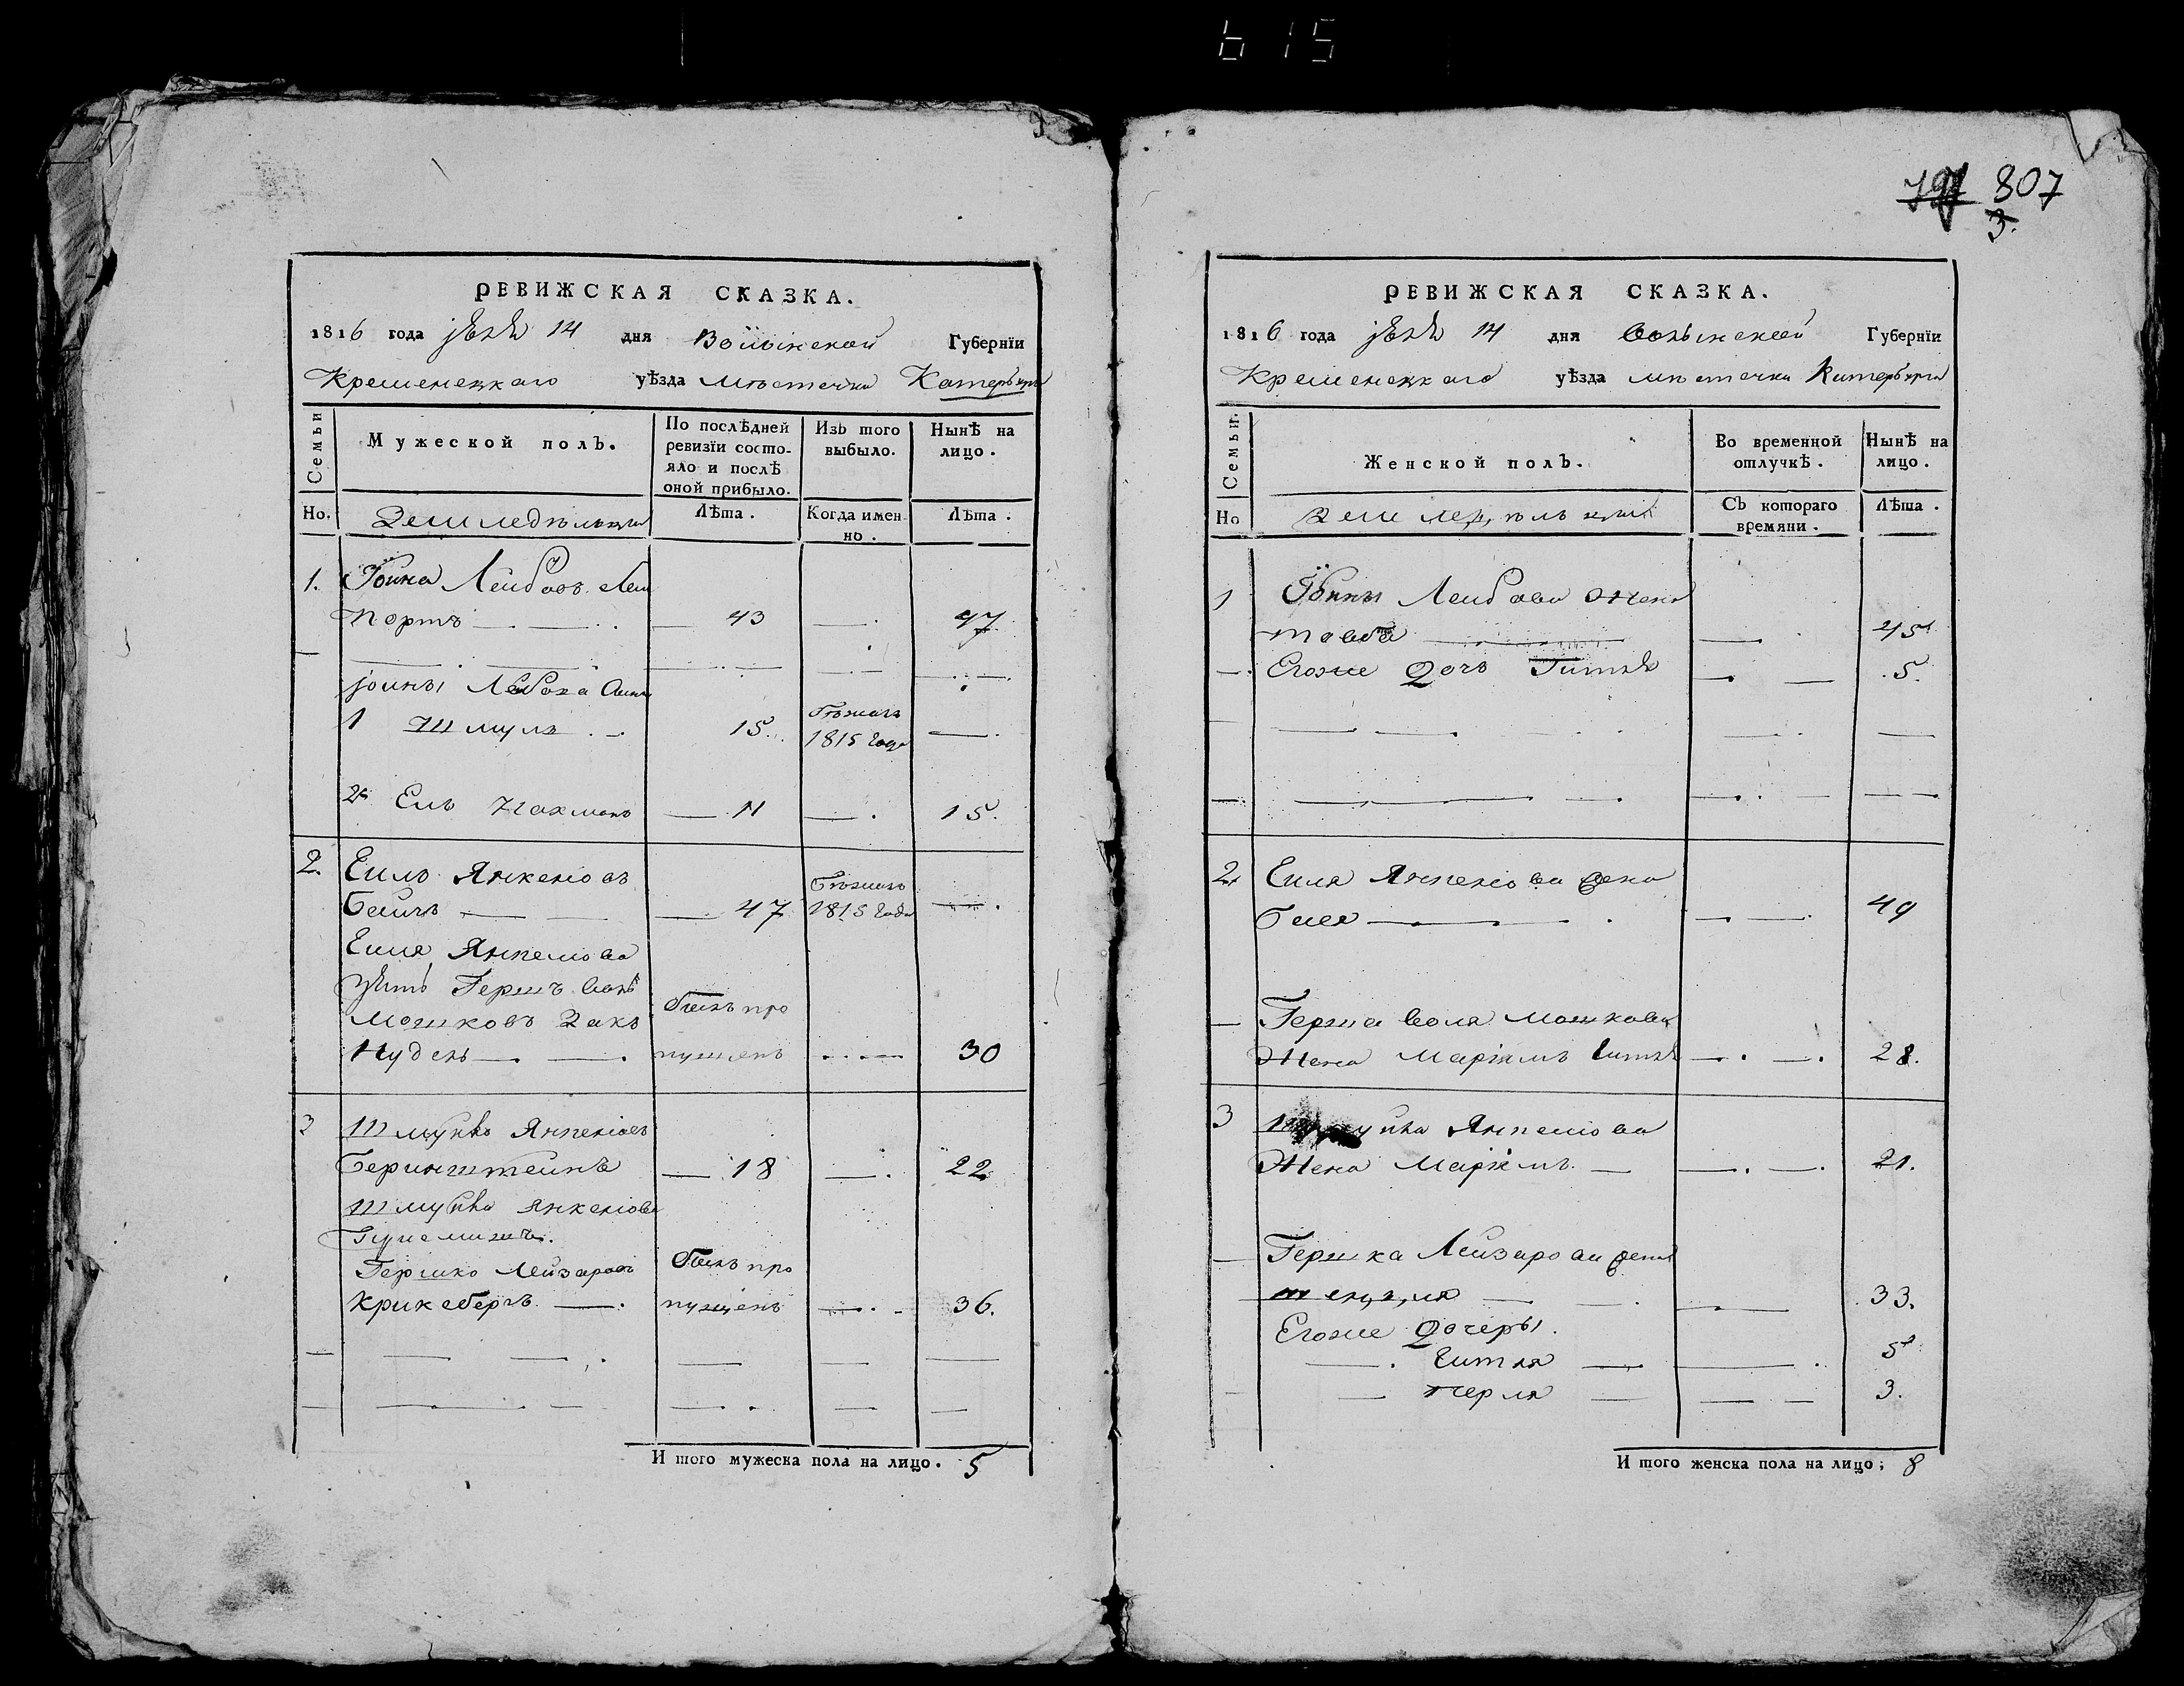 615
807
3.
РЕВИЖСКАЯ СКАЗКА.
1816 года 14 дня Волынской Губернїи
Кременецкаго уѣзда мѣстечка Катербурга
Семьи
Мужеской полъ.
По послѣдней ревизїи состояло и послѣ оной прибыло.
Изъ того выбыло.
Нынѣ на лицо.
Но.
Земледѣльцы
Лѣта.
Когда именно.
Лѣта.
1. Іоина Лейбовъ
портъ 43 47
Іоины Лейбова сынъ
1 Шмуль 15 бѣжалъ 1815 года
2й Ель Нахманъ 11 15.
2. Еиль Янкеліовъ
47 бѣжалъ 1815 года
Еиля Янкеліова
зять Гершъ Волъ
Мошковъ Закъ былъ про
Нудель пущенъ 30
3 Шмуйло Янкеліовъ
Беринштейнъ 18 22
Шмуйла Янкеліова
Гершко Лейзаровъ былъ про
Крикебергъ пущенъ 36.
И того мужеска пола на лицо. 5
РЕВИЖСКАЯ СКАЗКА.
1816 года 14 дня Волынской Губернїи
Кременецкаго уѣзда мѣстечка Катербурга
Семьи
Женской полъ.
Во временной отлучкѣ.
Нынѣ на лицо.
Но
Земледѣльцы
Съ котораго времяни.
Лѣта.
1 Іоины Лейбова жена
Тавба 45
Егоже дочь Гитля 5.
2. Еиля Янкеліова жена
Бися 49
Герша Воля Мошкова
жена Маріямъ Гитля 28.
3 Шмуйла Янкеліова
жена Маріямъ 21.
Гершка Лейзарова жена
33.
Егоже дочеры
Гитля 5
Перля 3.
И того женска пола на лицо; 8